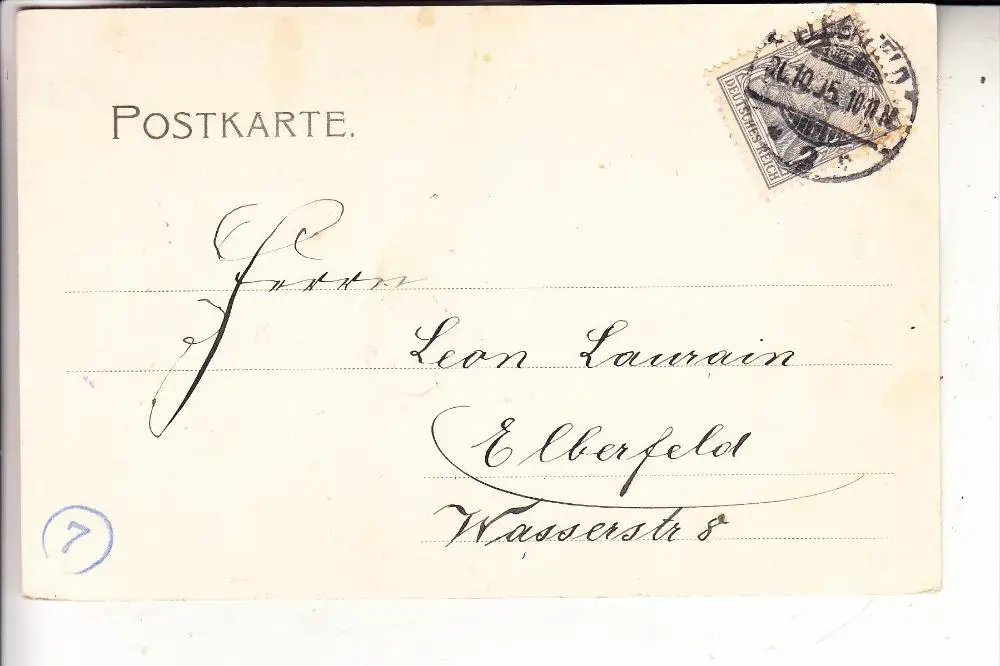 POSTKARTE.
DEUTSCHES REICH
10-11 N
2
Herrn
Leon Laurain
Elberfeld
Wasserstr 8
7